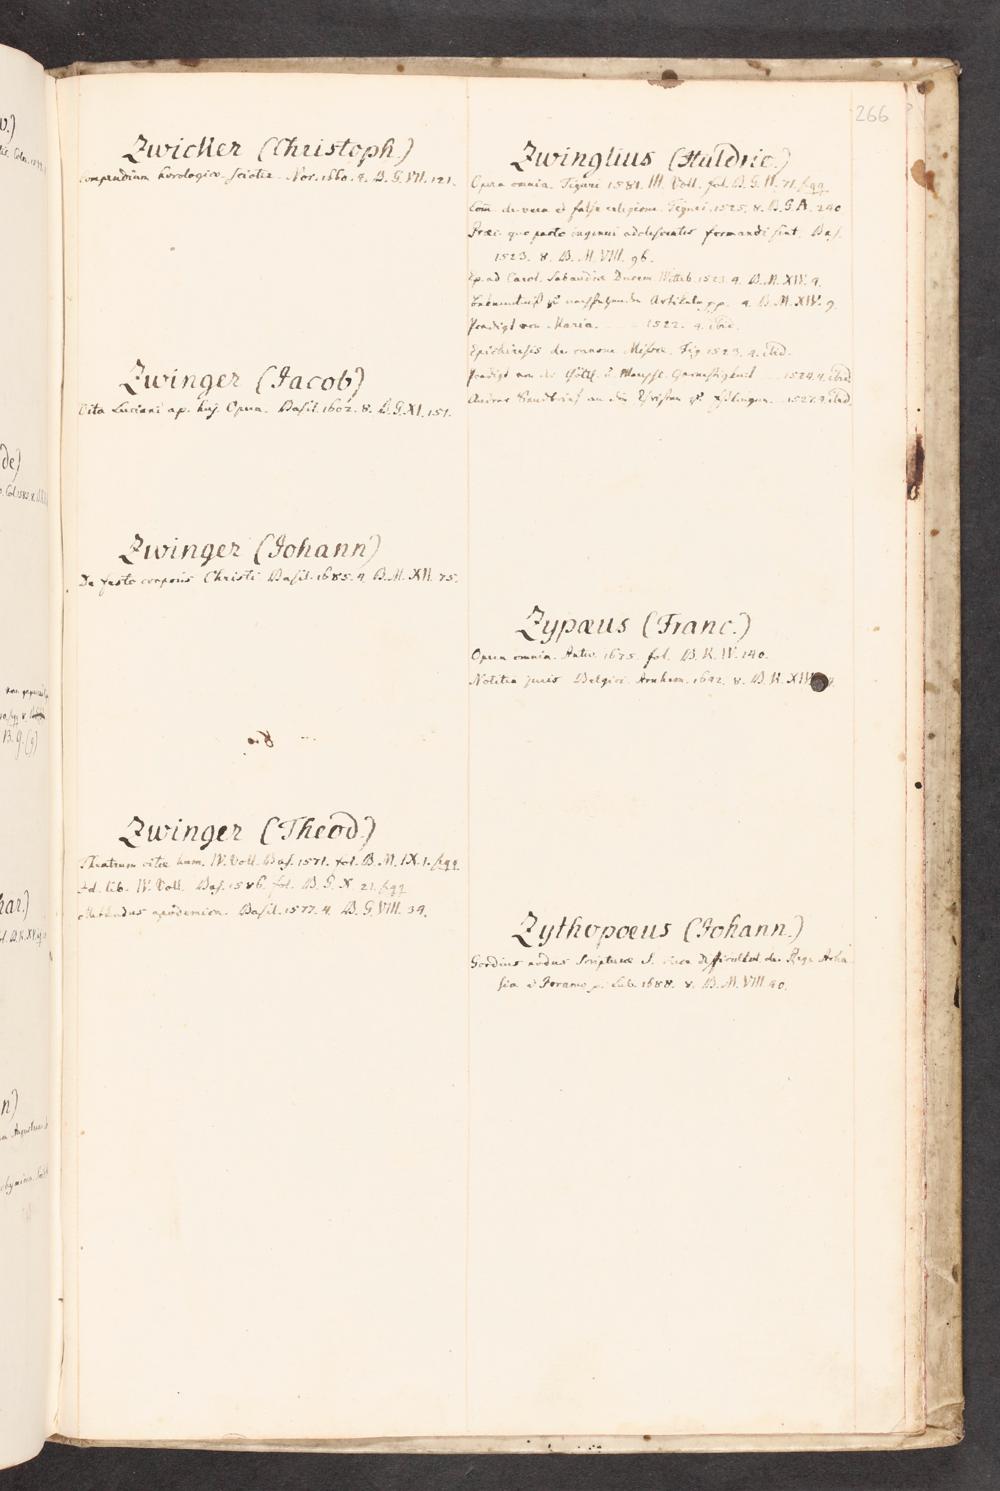 266
Zwicker (Christoph.)
Compendium horologico-scioter. Nor. 1660. 4. B. G. VII. 121.
Zwinger (Jacob)
Vita Luciani ap. huj. Opera. Basil. 1602. 8. B. G. XI. 151.
Zwinger (Johann)
De festo corporis Christi Basil. 1685. 4. B. M. XII. 75.
Zwinger (Theod.)
Theatrum vitæ hum. IV. Voll. Bas. 1571. fol. B. M. IX. 1. sqq.
Id. lib. IV. Voll. Bas. 1586. fol. B. G. X. 21. sqq
Methodus apodemica. Basil. 1577. 4. B. G. VIII. 34.
Zwinglius (Huldric.)
Opera omnia. Tiguri 1581. III. Voll. fol. B. G. II. 71. sqq.
Com̅. de vera et falsa religione. Tiguri. 1525. 8. B. G. A. 240
Præc. quo pacto ingenui adolescentes formandi sint. Bas.
1523. 8. B. M. VIII. 96.
Ep. ad Carol. Sabaudiæ Ducem Witteb. 1523. 4. B. M. XIV. 9.
Artikeln pp. 4. B. M. XIV. 9.
Predigt von Maria. 1522. 4. ibid.
Epichiresis de canone Missæ. Tig. 1523. 4. ibid.
Predigt von der Göttl. u. Menschl. Gerechtigkeit 1524. 4. ibid
Andrer Sendbrief an die Christen zu Esslingen. 1527. 4. ibid.
Zypæus (Franc.)
Opera omnia. Antw. 1675. fol. B. K. IV. 140.
Notitia juris Belgici. Arnhem. 1642. 8. B. K.
Zythopœus (Johann.)
Gordius nodus Scripturæ S. circa difficultat. de Rege Acha-
sia et Joramo 1688. 8. B. M. VIII. 40.